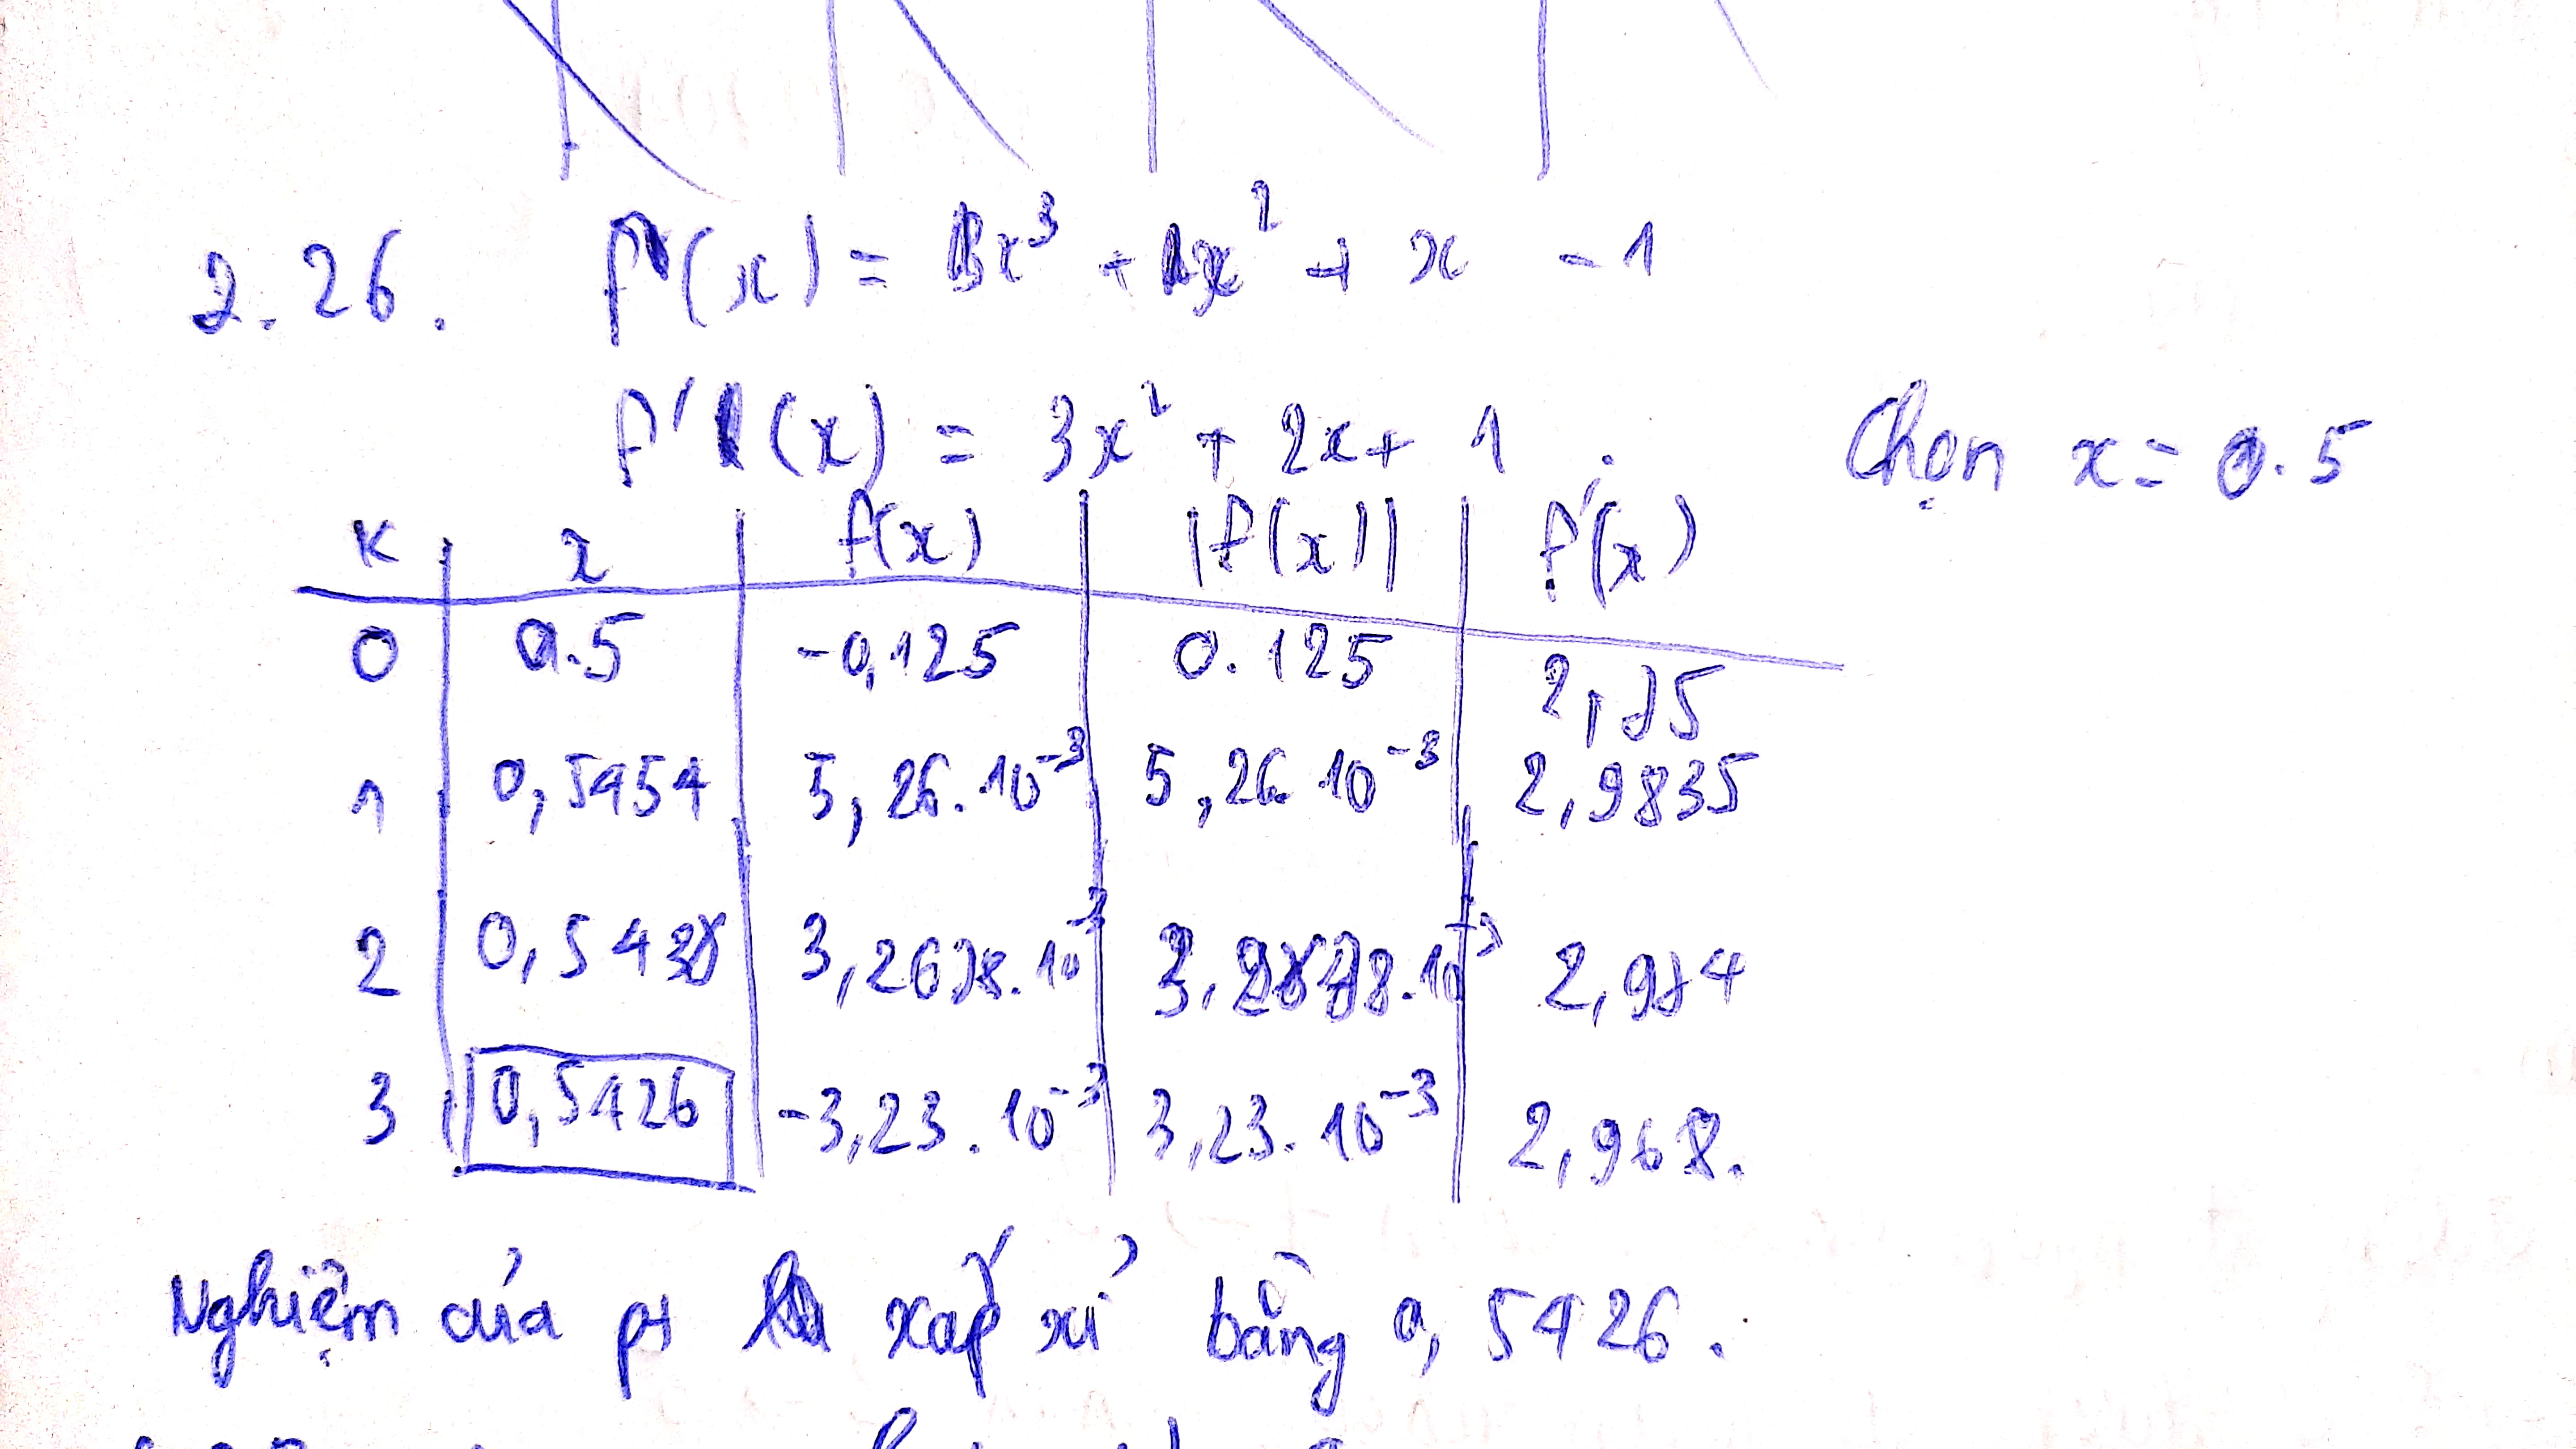 2.26. f(x) = x³ + x² + x - 1
f'(x) = 3x² + 2x + 1. Chọn x = 0.5
K x f(x) |f(x)| f'(x)
0 0.5 -0,125 0.125 2,75
1 0,5454 5,26.10⁻³ 5,26.10⁻³ 2,9835
2 0,543
3 0,5426 -3,23.10⁻³ 3,23.10⁻³ 2,968.
Nghiệm của pt xấp xỉ bằng 0,5426.